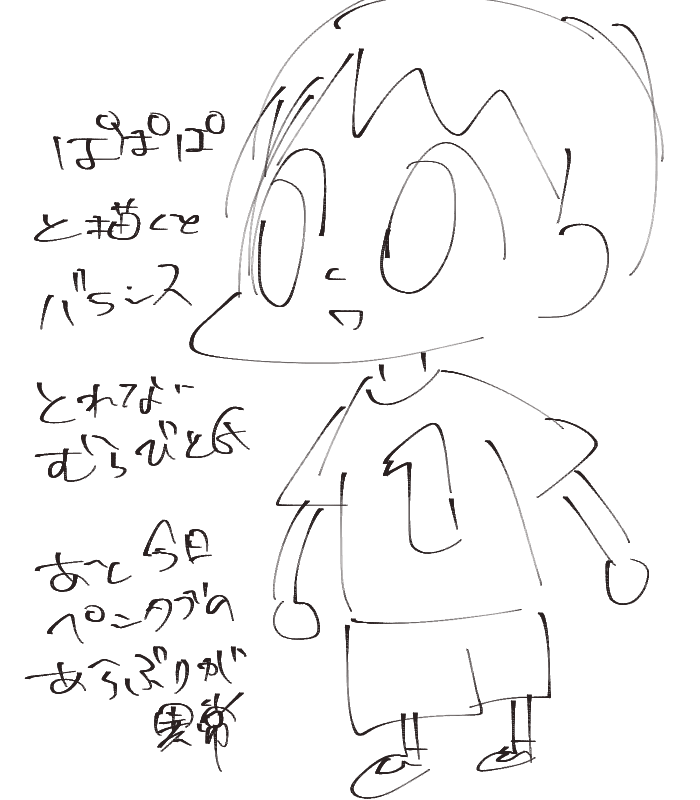 ぱぱぱ
と描くと
バランス
とれてない
むらびと氏
あと今日
ペンタブの
あらぶりが
異常
1